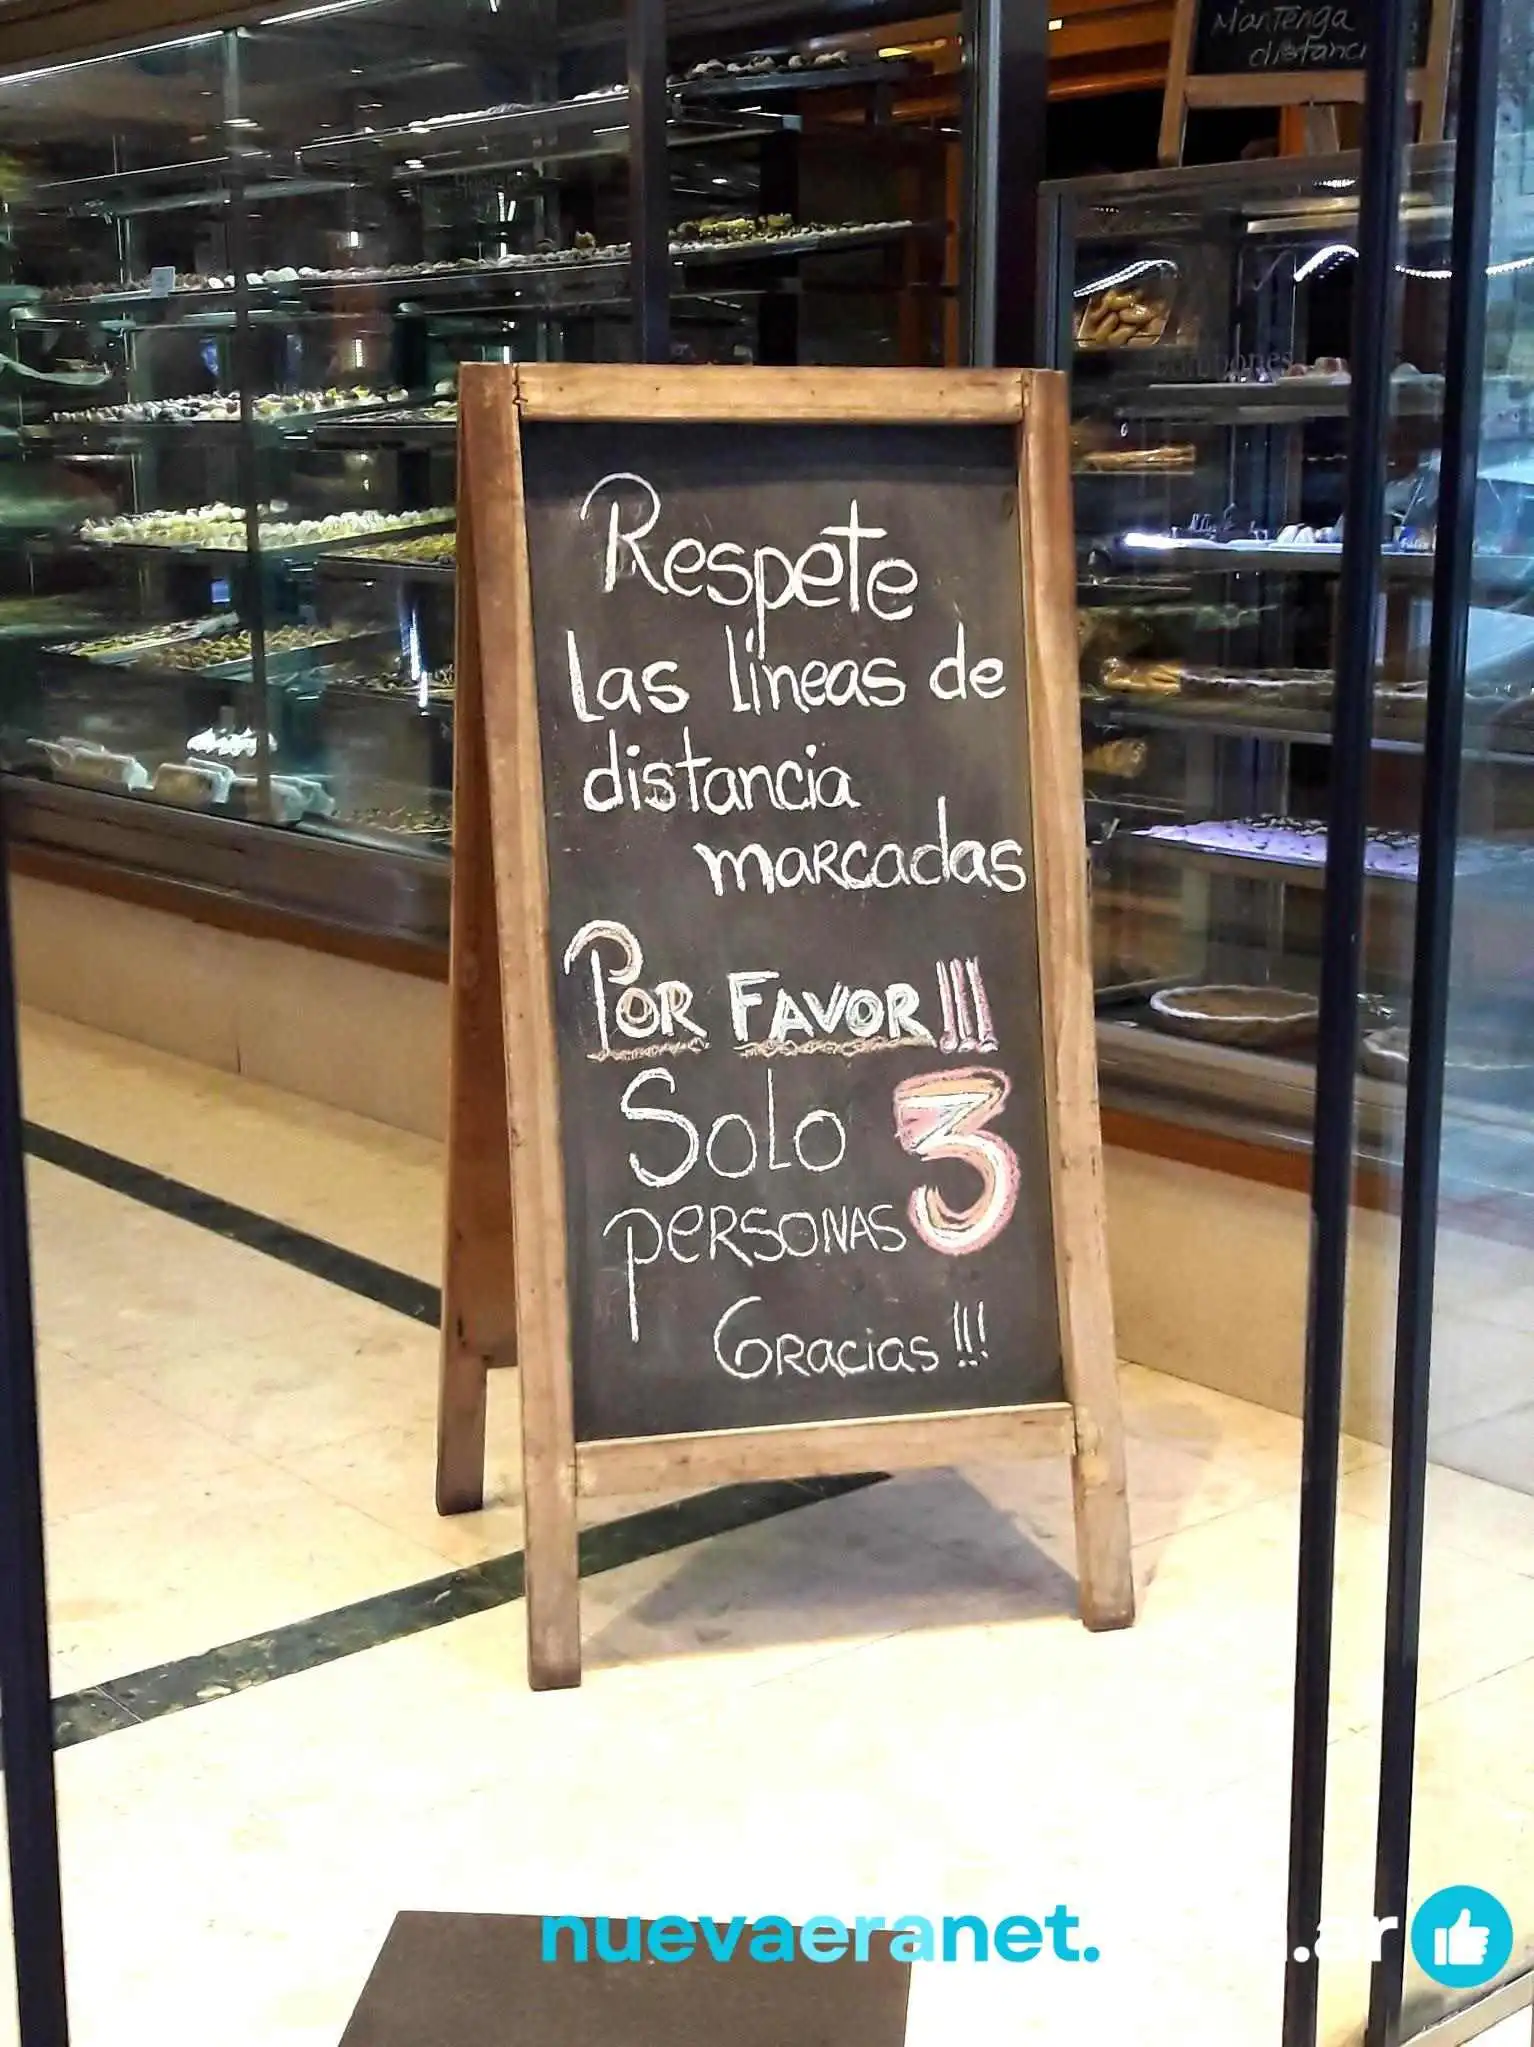 Mantenga
distanci
Bombones
Respete
las líneas de
distancia
marcadas
POR FAVOR!!!
Solo 3
personas
Gracias!!!
nuevaeranet. .ar